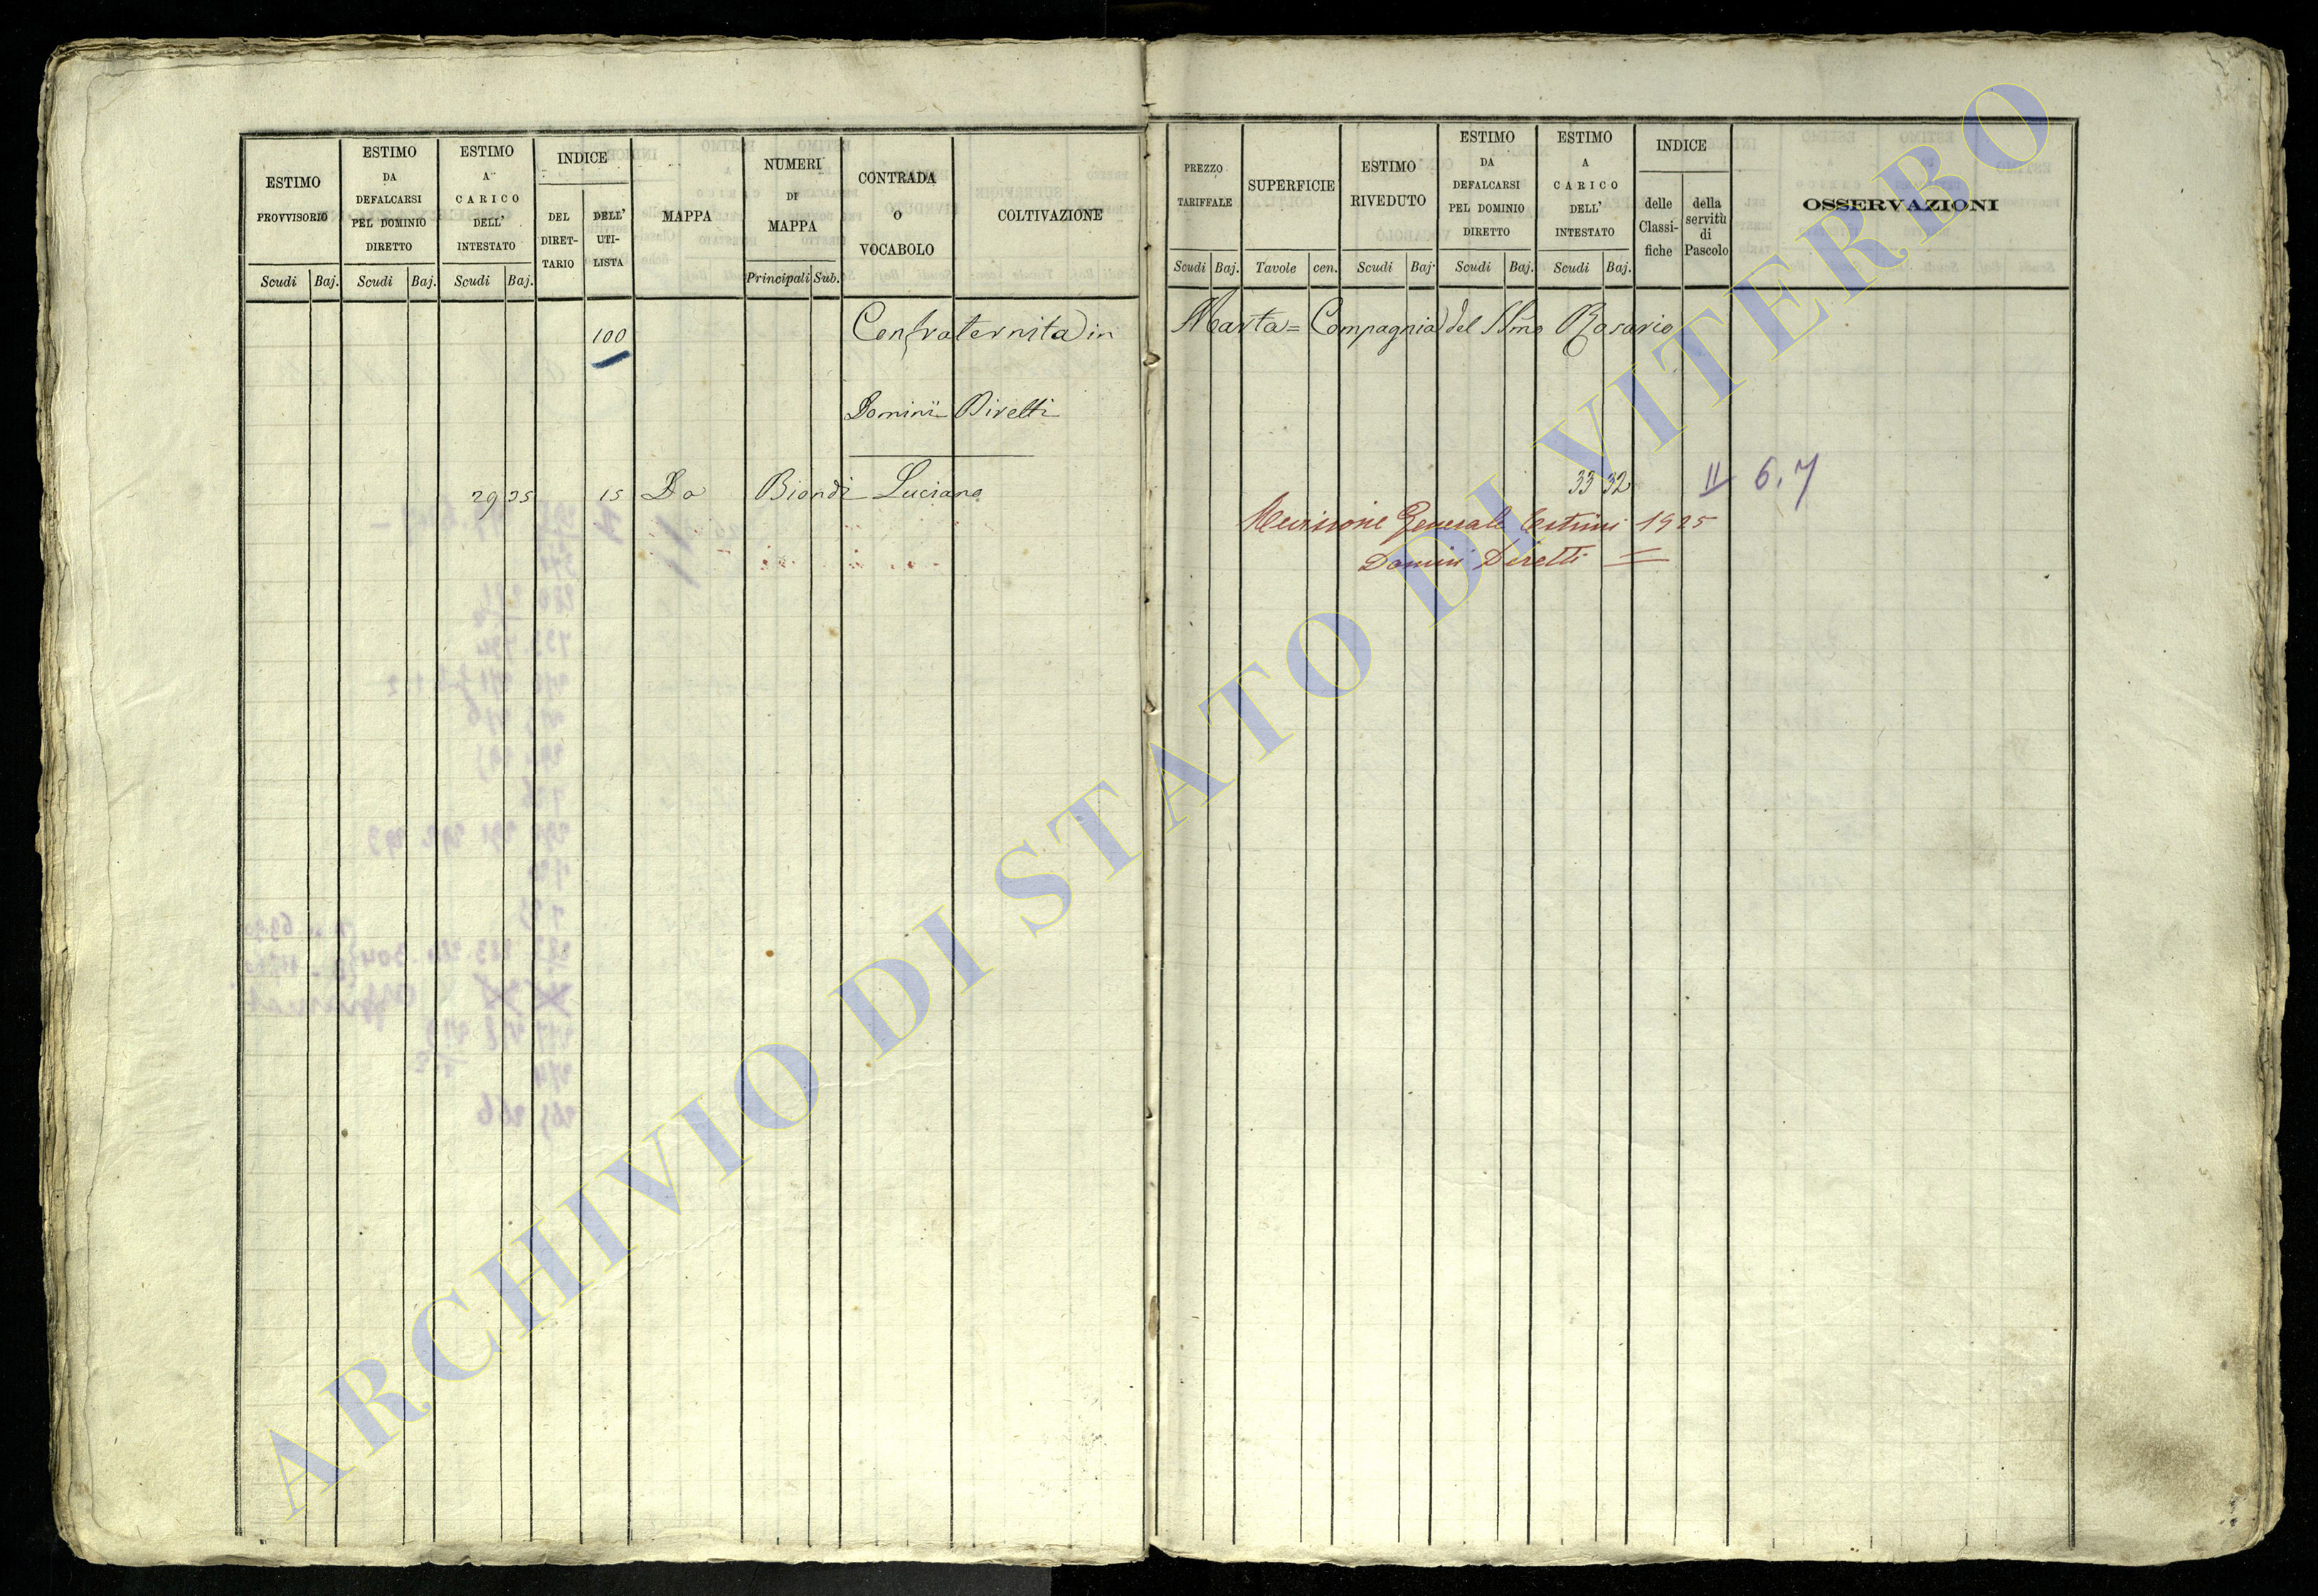 ESTIMO PROVVISORIO
ESTIMO DA DEFALCARSI PEL DOMINIO DIRETTO
ESTIMO A CARICO DELL' INTESTATO
INDICE
DEL DIRET-TARIO
DELL' UTI-LISTA
MAPPA
NUMERI DI MAPPA
CONTRADA O VOCABOLO
COLTIVAZIONE
PREZZO TARIFFALE
SUPERFICIE
ESTIMO RIVEDUTO
ESTIMO DA DEFALCARSI PEL DOMINIO DIRETTO
ESTIMO A CARICO DELL' INTESTATO
INDICE
delle Classi-fiche
della servitù di Pascolo
OSSERVAZIONI
Scudi Baj. Scudi Baj. Scudi Baj. Principali Sub. Scudi Baj. Tavole cen. Scudi Baj. Scudi Baj. Scudi Baj.
100 Confraternita in Marta = Compagnia del SSmo Rosario
Dominii Diretti
29 35 15 Da Biondi Luciano 33 32 II 6.7
Revisione Generale Estimi 1925
Domini Diretti =
ARCHIVIO DI STATO DI VITERBO